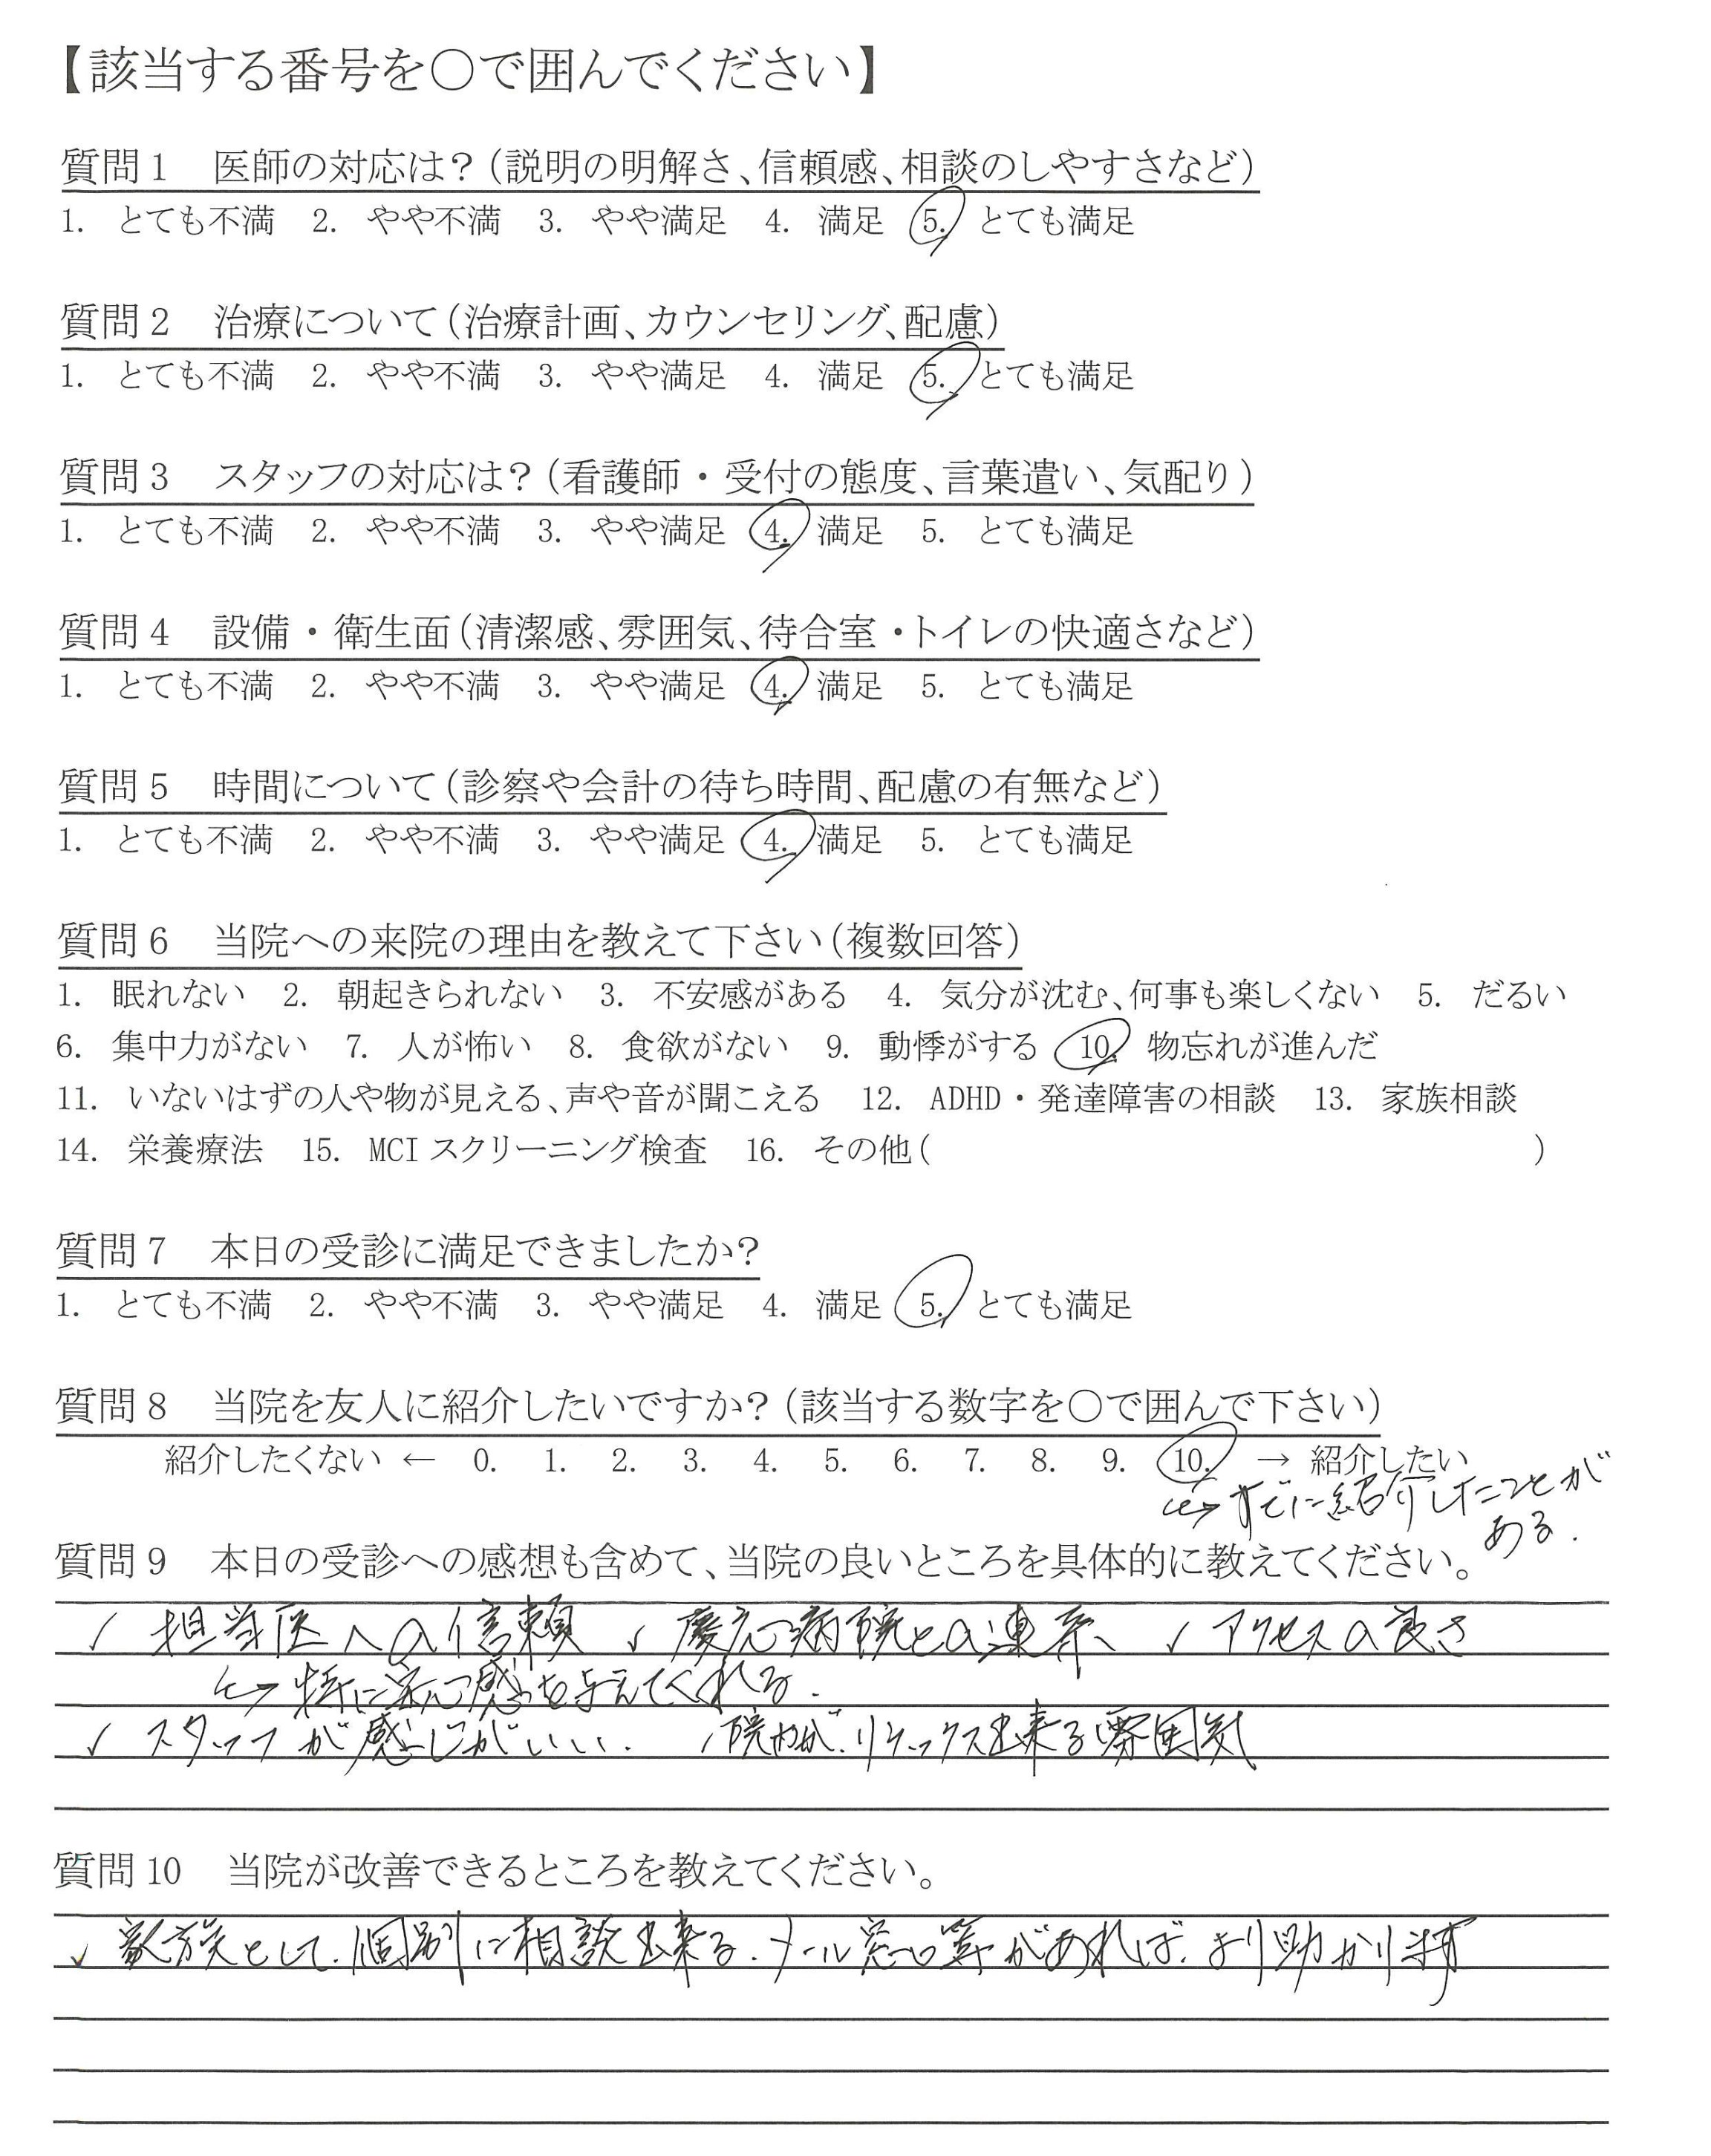 【該当する番号を○で囲んでください】
質問1　医師の対応は？（説明の明解さ、信頼感、相談のしやすさなど）
1.　とても不満　2.　やや不満　3.　やや満足　4.　満足　5.　とても満足
質問2　治療について（治療計画、カウンセリング、配慮）
1.　とても不満　2.　やや不満　3.　やや満足　4.　満足　5.　とても満足
質問3　スタッフの対応は？（看護師・受付の態度、言葉遣い、気配り）
1.　とても不満　2.　やや不満　3.　やや満足　4.　満足　5.　とても満足
質問4　設備・衛生面（清潔感、雰囲気、待合室・トイレの快適さなど）
1.　とても不満　2.　やや不満　3.　やや満足　4.　満足　5.　とても満足
質問5　時間について（診察や会計の待ち時間、配慮の有無など）
1.　とても不満　2.　やや不満　3.　やや満足　4.　満足　5.　とても満足
質問6　当院への来院の理由を教えて下さい（複数回答）
1.　眠れない　2.　朝起きられない　3.　不安感がある　4.　気分が沈む、何事も楽しくない　5.　だるい
6.　集中力がない　7.　人が怖い　8.　食欲がない　9.　動悸がする　10.　物忘れが進んだ
11.　いないはずの人や物が見える、声や音が聞こえる　12.　ADHD・発達障害の相談　13.　家族相談
14.　栄養療法　15.　MCIスクリーニング検査　16.　その他（　　　）
質問7　本日の受診に満足できましたか？
1.　とても不満　2.　やや不満　3.　やや満足　4.　満足　5.　とても満足
質問8　当院を友人に紹介したいですか？（該当する数字を○で囲んで下さい）
紹介したくない ← 0.　1.　2.　3.　4.　5.　6.　7.　8.　9.　10.　→ 紹介したい
すでに紹介したことが
ある.
質問9　本日の受診への感想も含めて、当院の良いところを具体的に教えてください。
✓ 担当医への信頼　✓ 慶応病院との連系　✓ アクセスの良さ
↪ 特に安心感を与えてくれる.
✓ スタッフが感じがいい.　✓ 院内が、リラックス出来る雰囲気
質問10　当院が改善できるところを教えてください。
✓ 家族として、個別に相談出来る、メール窓口等があれば、より助かります